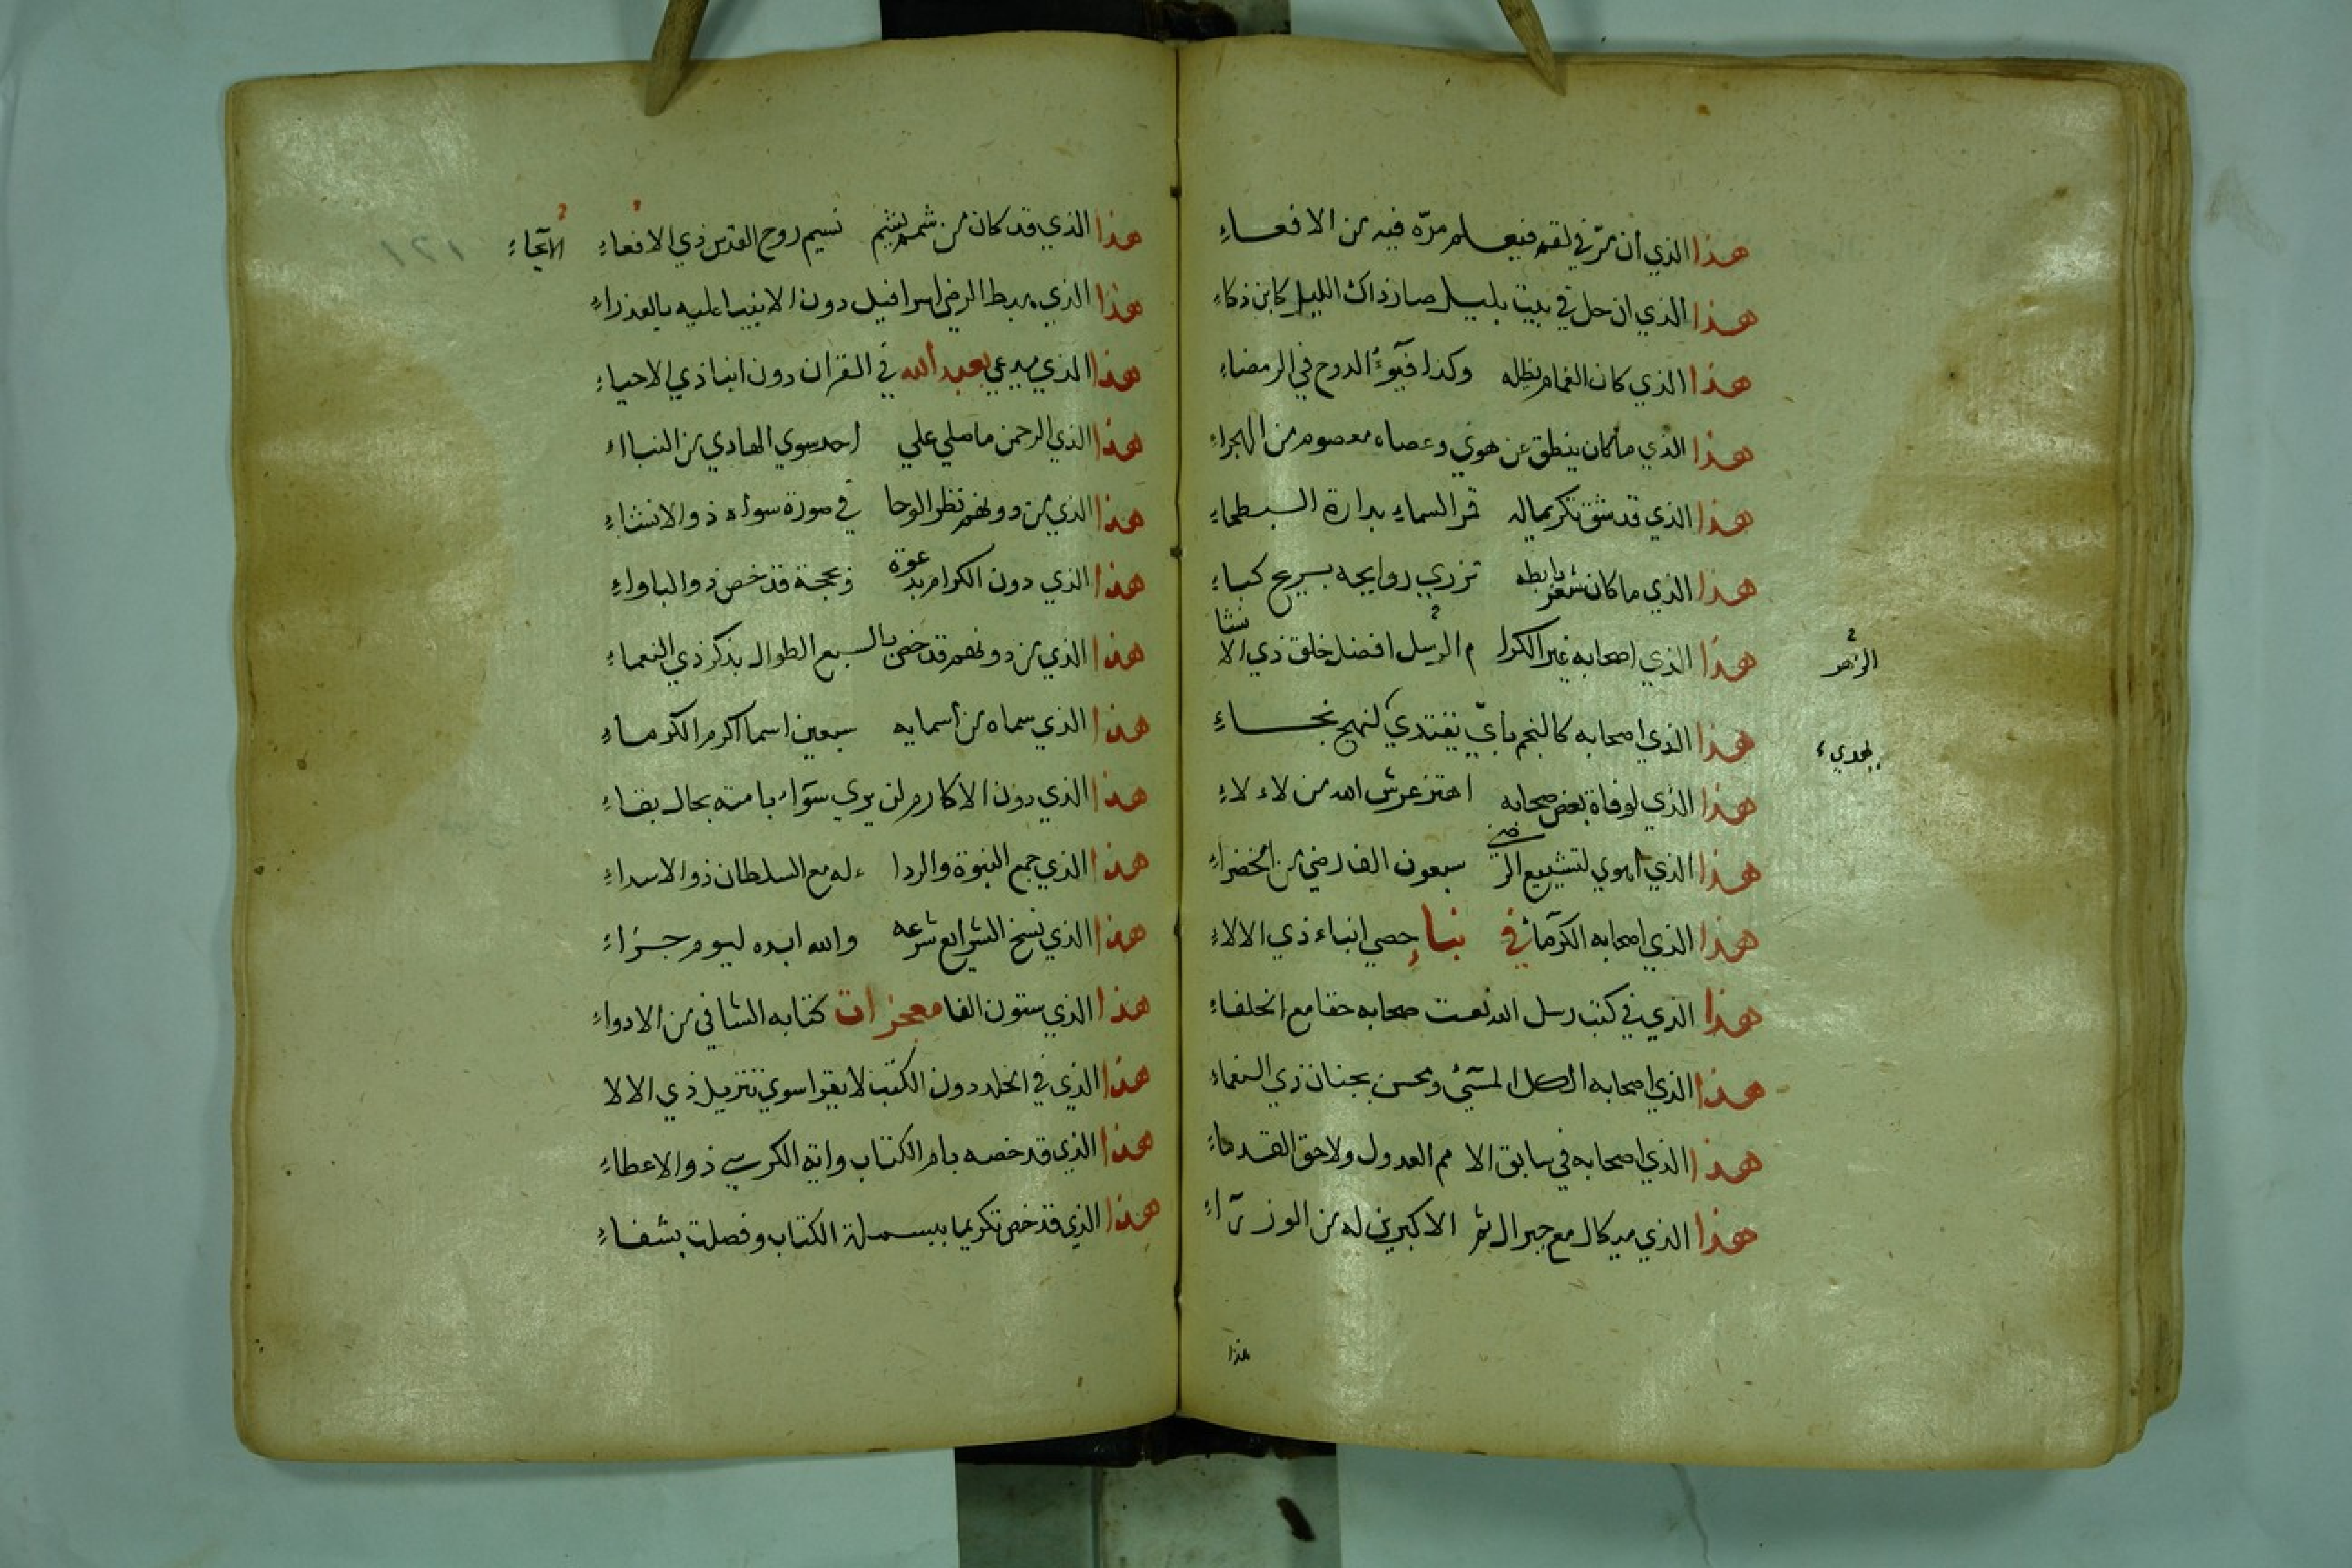 هذا الذي ان مرّ في لقم فيعلم مرّه فيه من الافعاءِ
هذا الذي ان حل في بيت بليل صار ذاك الليل كابن ذكاءِ
هذا الذي كان الغمام يظله وكذا فيؤُ الدوح في الرمضاءِ
هذا الذي ما كان ينطق عن هوي وعصاه معصوم من الهجراءِ
هذا الذي قد شق تكريما له قمر السماءِ بدارة البطحاءِ
هذا الذي ما كان شعر بابطه تزري روايحه بريح كباءِ
هذا الذي اصحابه غير الكرا م الرسل افضل خلق ذي الانشا
الزهر
هذا الذي اصحابه كالنجم بايّ يقتدي كنهج نجاءِ
يهدي
هذا الذي لوفاة بعض صحابه اهتز عرش الله من لاءلاءِ
هذا الذي اهوي لتشييع الرضي سبعون الفا رضي من الخضراءِ
هذا الذي اصحابه الكرمآء في نباءِ حصي انباء ذي الالاءِ
هذا الذي في كتب رسل الله نعت صحابه حقا مع الخلفاءِ
هذا الذي اصحابه الكل المسيئ ومحسن بجنان ذي النعماءِ
هذا الذي اصحابه في سابق الا مم العدول ولاحق القدماءِ
هذا الذي ميكال مع جبرال ثم الاكبرين له من الوزرآءِ
هذا
هذا الذي قد كان من شم يشيم نسيم روح القدس ذي الافعاءِ
الآتجاءِ
١٢١
هذا الذي هبط الرضي اسرافيل دون الانبيا عليه بالعذراءِ
هذا الذي يدعي بعبد الله في القران دون انبا ذي الاحياءِ
هذا الذي الرحمن ما صلي علي احد سوي الهادي من النباء
هذا الذي من دونهم نظر الوحا في صورة سواه ذو الانشاءِ
هذا الذي دون الكرام بدعوة وبحجة قد خص ذو الباواءِ
هذا الذي من دونهم قد خص بالسبع الطوال بذكر ذي النعماءِ
هذا الذي سماه من أسمايه سبعين اسما اكرم الكرماءِ
هذا الذي دون الاكارم لن يري سوّاء بامته بحال بقاءِ
هذا الذي جمع النبوة والردا ء له مع السلطان ذو الاسداءِ
هذا الذي نسخ الشرايع شرعه والله ابده ليوم جزاءِ
هذا الذي ستون الفا معجزات كتابه الشافي من الادواءِ
هذا الذي في الخلد دون الكتب لا يقرا سوي تنزيل ذي الالا
هذا الذي قد خصه بام الكتاب واية الكرسي ذو الاعطاءِ
هذا الذي قد خص تكريما ببسملة الكتاب وفصلت بشفاءِ